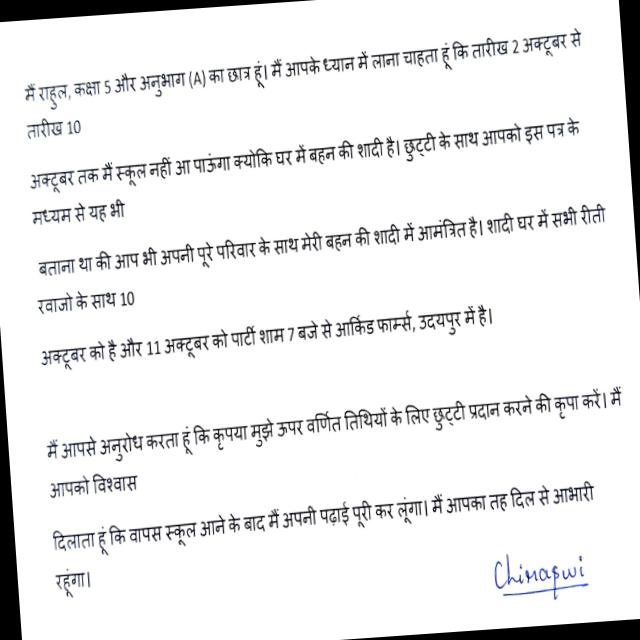 मैं राहुल, कक्षा 5 और अनुभाग (A) का छात्र हूं। मैं आपके ध्यान में लाना चाहता हूं कि तारीख 2 अक्टूबर से
तारीख 10
अक्टूबर तक मैं स्कूल नहीं आ पाऊंगा क्योकि घर में बहन की शादी है। छुट्टी के साथ आपको इस पत्र के
मध्यम से यह भी
बताना था की आप भी अपनी पूरे परिवार के साथ मेरी बहन की शादी में आमंत्रित है। शादी घर में सभी रीती
रवाजो के साथ 10
अक्टूबर को है और 11 अक्टूबर को पार्टी शाम 7 बजे से आर्किड फार्म्स, उदयपुर में है।
मैं आपसे अनुरोध करता हूं कि कृपया मुझे ऊपर वर्णित तिथियों के लिए छुट्टी प्रदान करने की कृपा करें। मैं
आपको विश्वास
दिलाता हूं कि वापस स्कूल आने के बाद मैं अपनी पढ़ाई पूरी कर लूंगा। मैं आपका तह दिल से आभारी
रहूंगा।